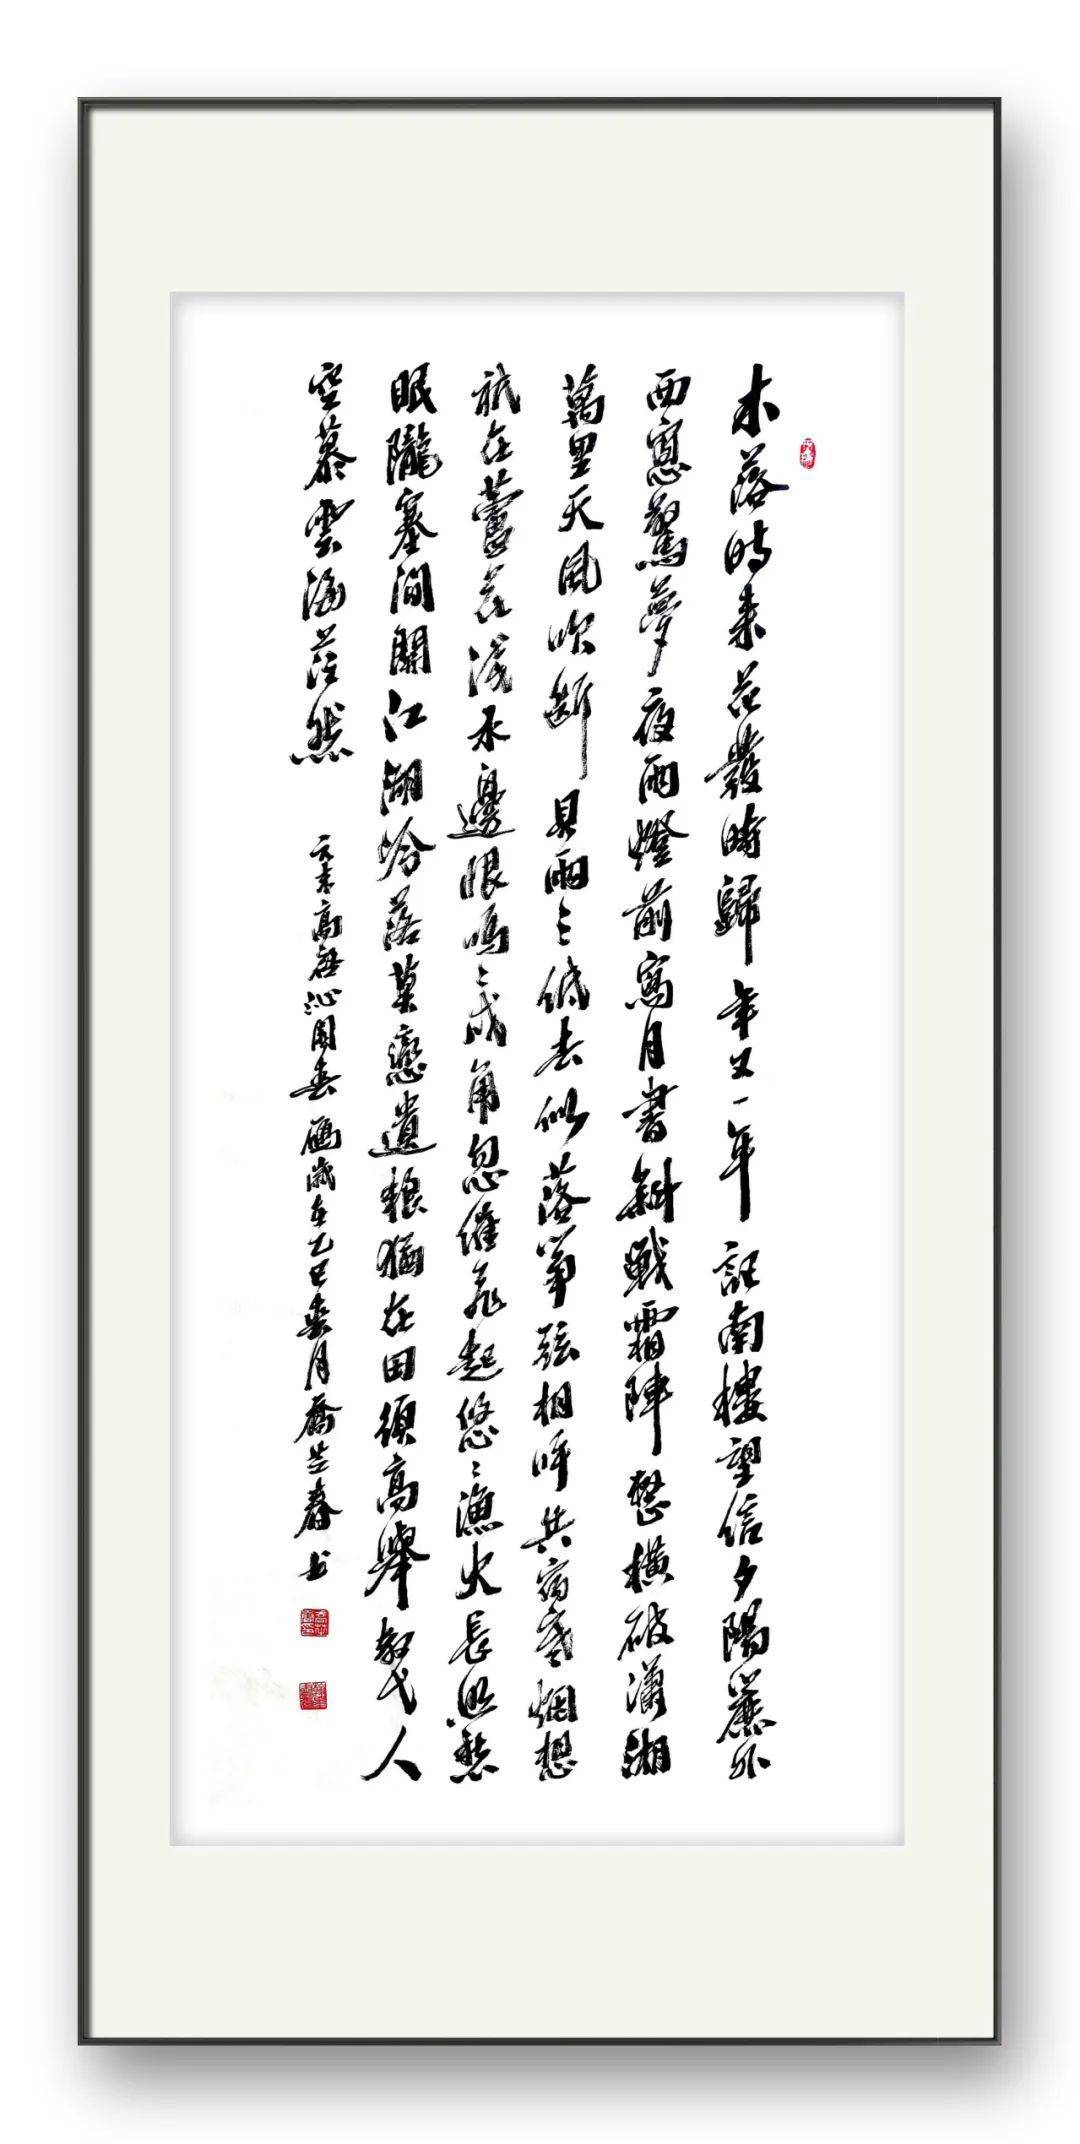 木落時来花發時歸年又一年記南樓望信夕陽簾外
西窓驚夢夜雨燈前寫月書斜戰霜陣整橫破瀟湘
萬里天風吹斷見兩三低去似落筝弦相呼共宿寒烟想
祇在蘆花淺水邊恨嗚〻戍角忽催飛起悠〻漁火長照愁
眠隴塞間關江湖冷落莫戀遺粮猶在田須高舉教弋人
空慕雲海茫然
元末高啟沁園春雁歲在乙巳春月喬春书